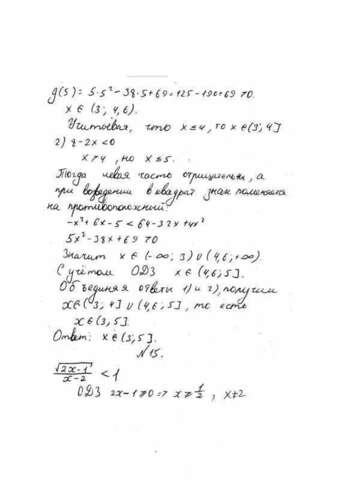 g(5) = 5·5² - 38·5 + 69 = 125 - 190 + 69 > 0.
x ∈ (3; 4,6).
Учитывая, что x ≤ 4, то x ∈ (3; 4]
2) 8 - 2x < 0
x > 4, но x ≤ 5.
Тогда левая часть отрицательна, а
при возведении в квадрат знак поменяется
на противоположный:
-x² + 6x - 5 < 64 - 32x + 4x²
5x² - 38x + 69 > 0
Значит x ∈ (-∞; 3) ∪ (4,6; +∞)
С учётом ОДЗ x ∈ (4,6; 5].
Объединяя ответы 1) и 2), получим
x ∈ (3; 4] ∪ (4,6; 5], то есть
x ∈ (3; 5].
Ответ: x ∈ (3; 5].
№15.
√(2x-1) / (x-2) < 1
ОДЗ 2x - 1 ≥ 0 => x ≥ 1/2, x ≠ 2